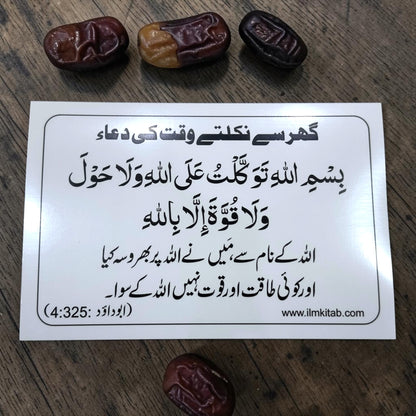 گھر سے نکلتے وقت کی دعاء
بِسْمِ اللهِ تَوَكَّلْتُ عَلَى اللهِ وَلَا حَوْلَ
وَلَا قُوَّةَ إِلَّا بِاللهِ
اللہ کے نام سے مَیں نے اللہ پر بھروسہ کیا
اور کوئی طاقت اور قوت نہیں اللہ کے سوا۔
(ابوداؤد :4:325)
www.ilmkitab.com